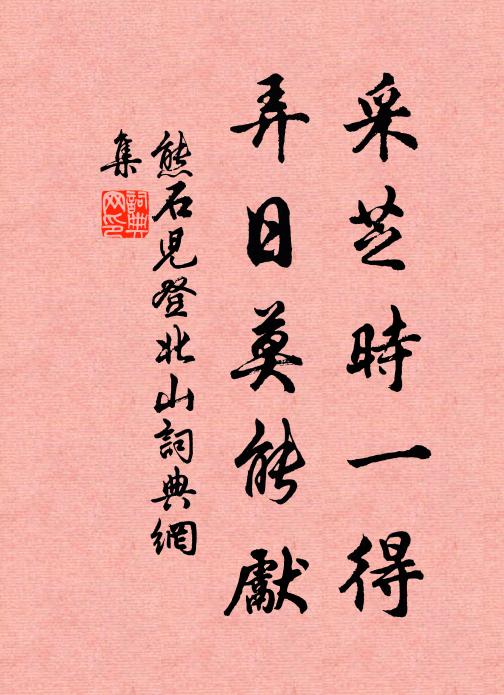 采芝時一得
弄日莫能獻
熊石児登北山詞典網
集
詞典
网印